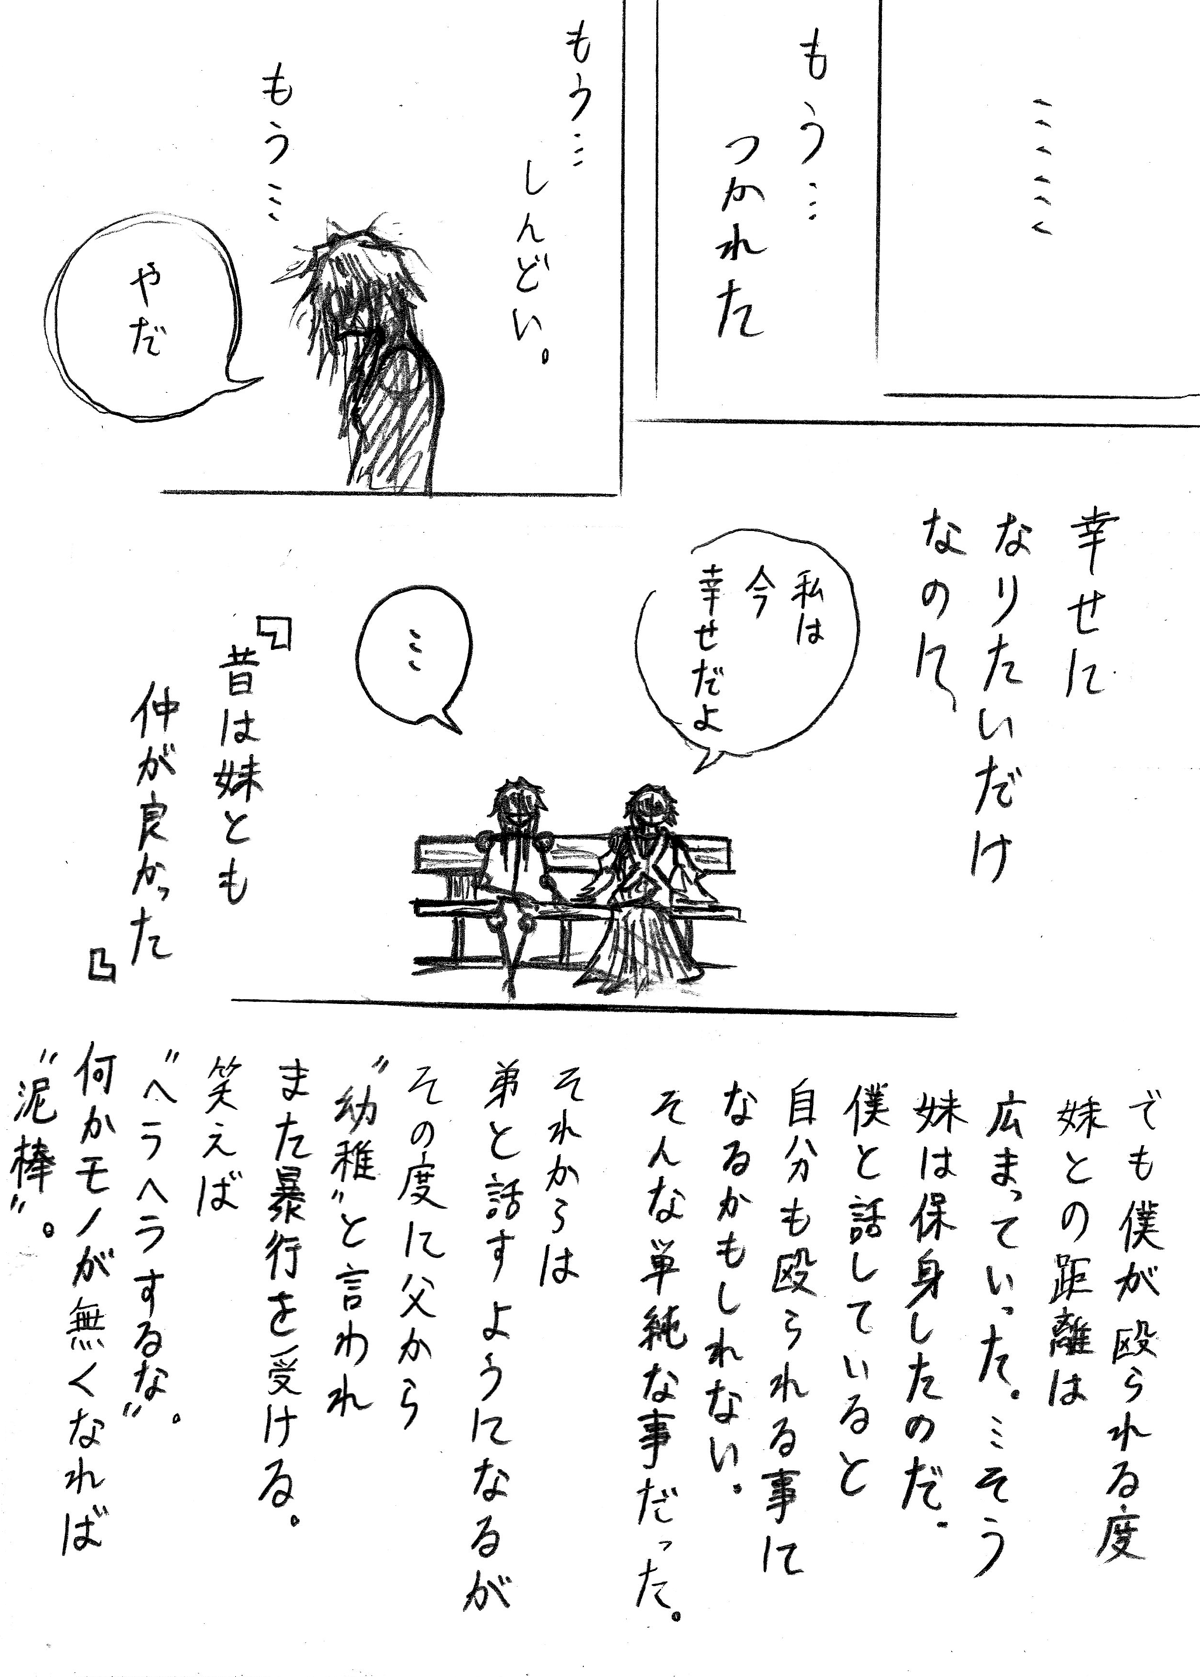 ……
もう…
つかれた
もう…
しんどい。
もう…
やだ
幸せに
なりたいだけ
なのに、
私は
今
幸せだよ
…
『昔は妹とも
仲が良かった』
でも僕が殴られる度
妹との距離は
広まっていった。…そう
妹は保身したのだ。
僕と話していると
自分も殴られる事に
なるかもしれない。
そんな単純な事だった。
それからは
弟と話すようになるが
その度に父から
"幼稚"と言われ
また暴行を受ける。
笑えば
"ヘラヘラするな"。
何かモノが無くなれば
"泥棒"。